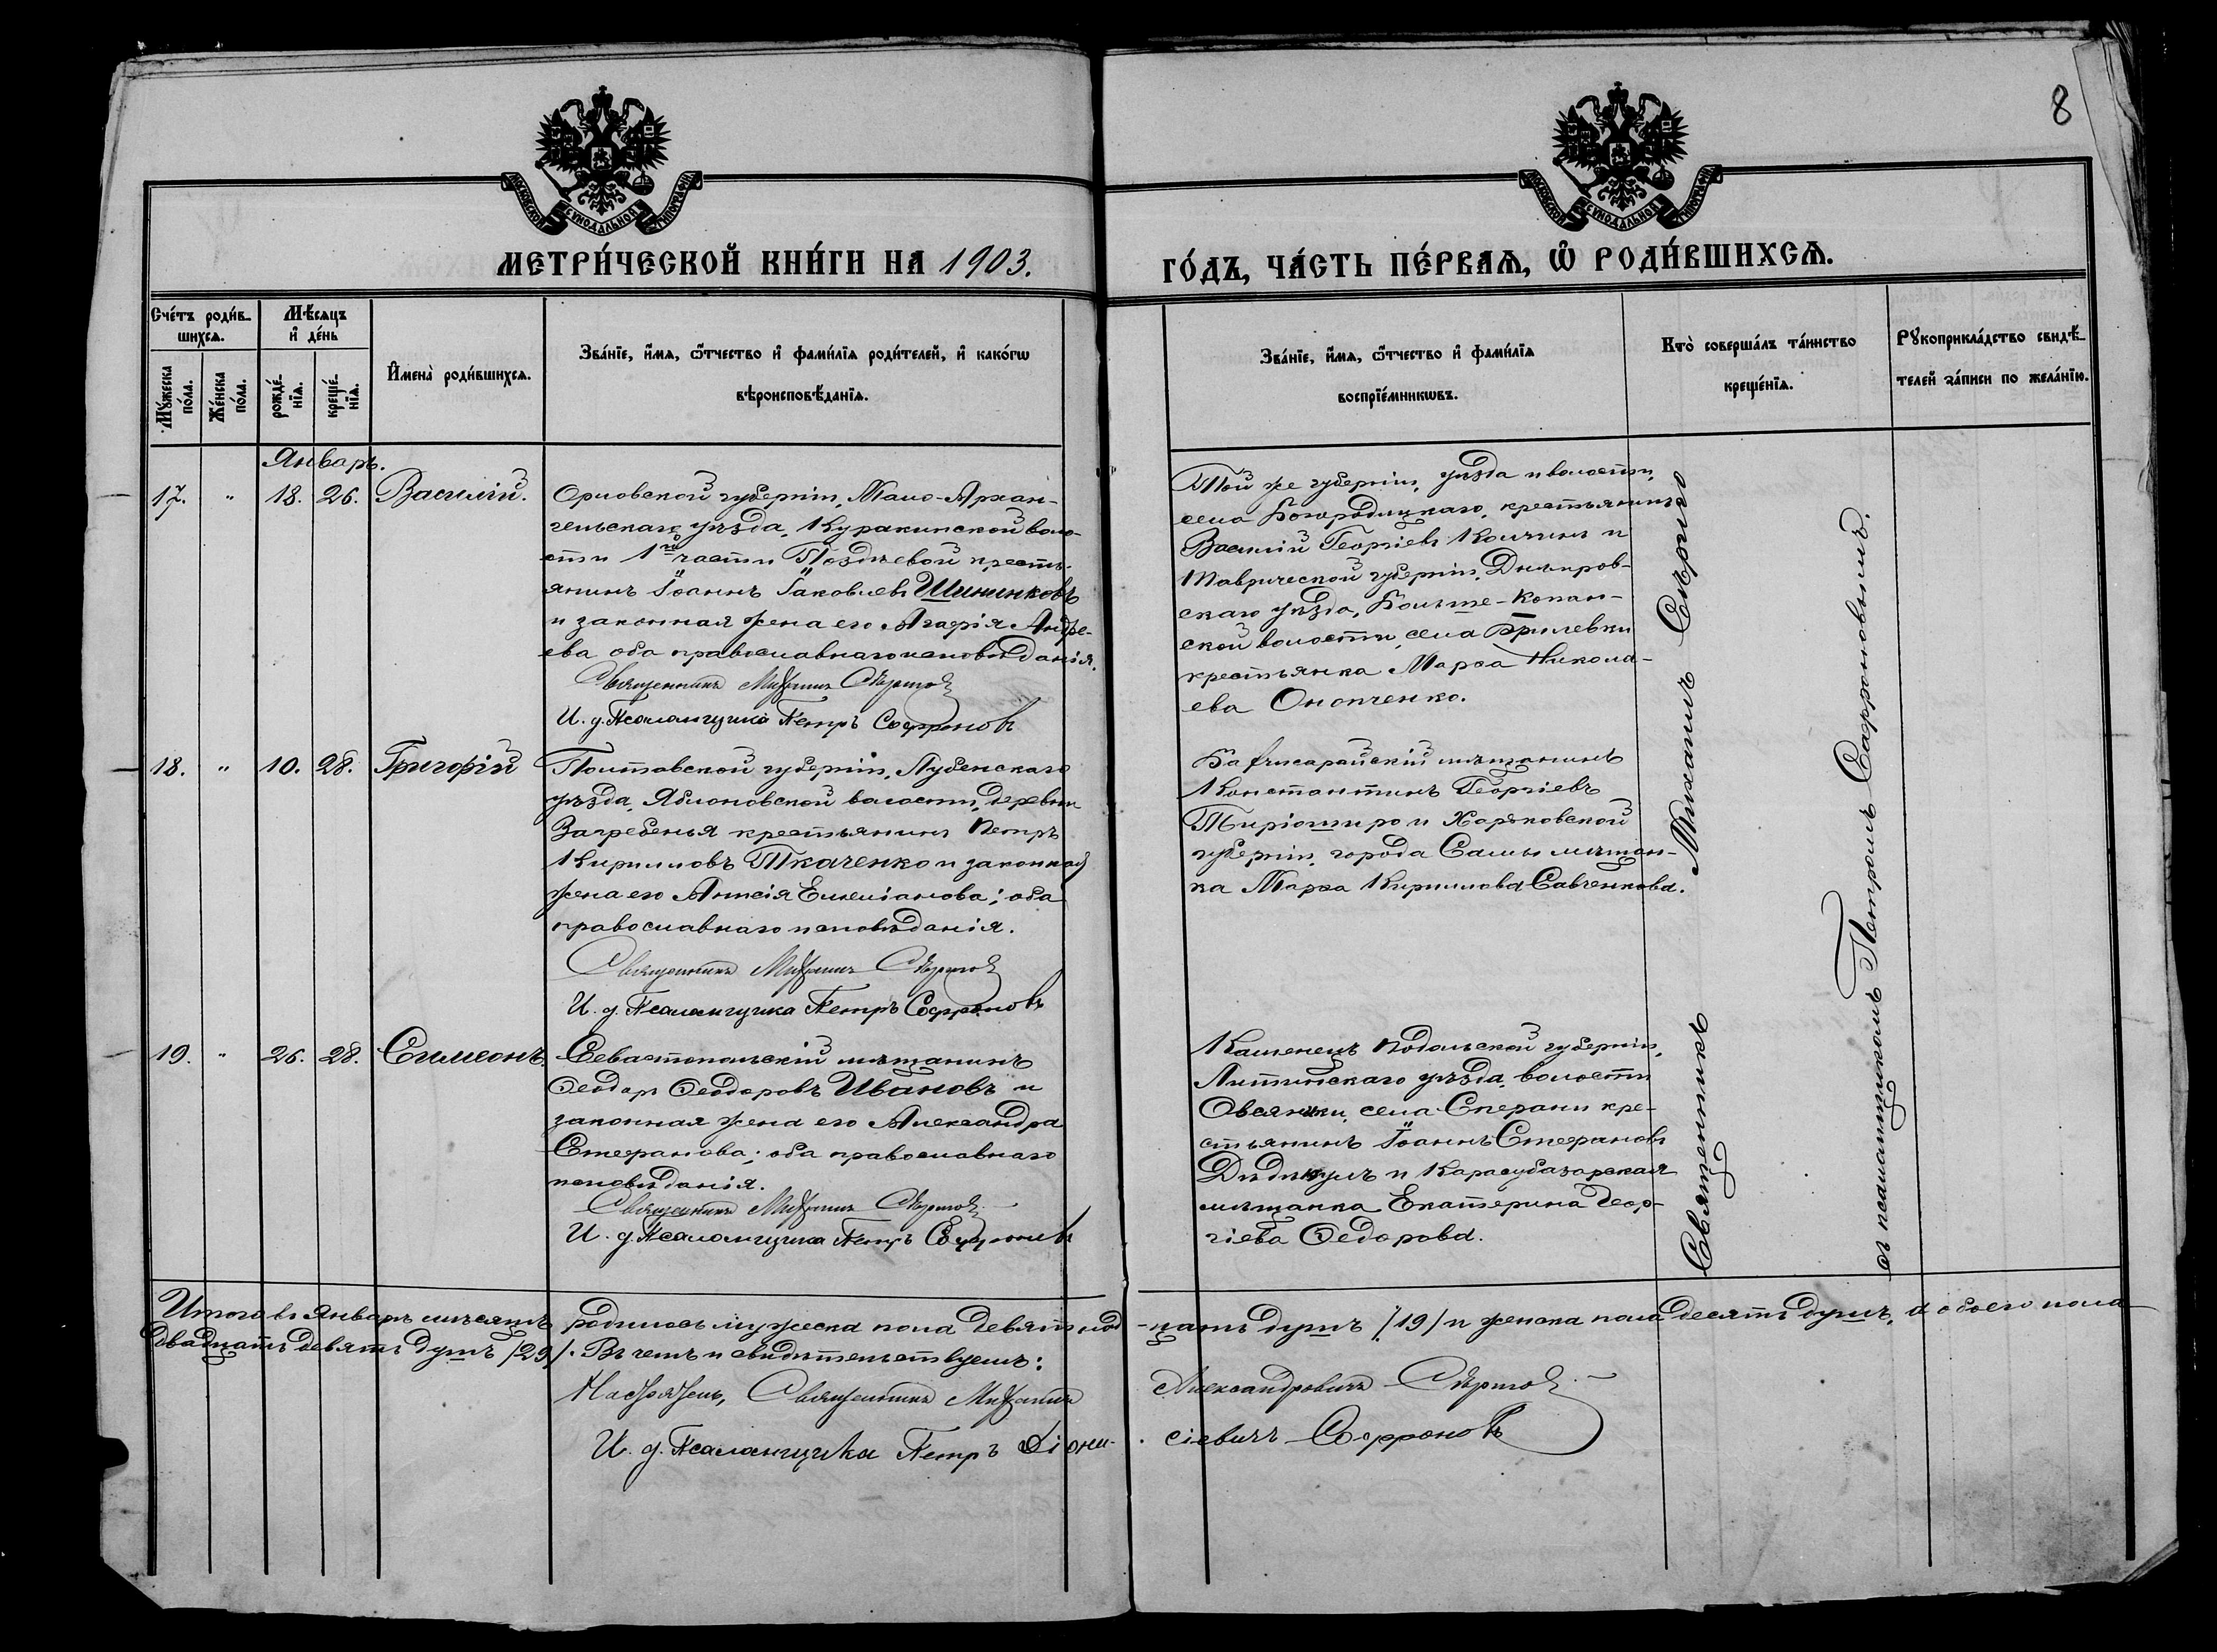 8
МОСКОВСКОЙ СѴНОДАЛЬНОЙ ТИПОГРАФІИ
МОСКОВСКОЙ СѴНОДАЛЬНОЙ ТИПОГРАФІИ
МЕТРИ́ЧЕСКОЙ КНИ́ГИ НА 1903.
ГО́ДЪ, ЧА́СТЬ ПЕ́РВАѦ, Ѿ РОДИ́ВШИХСѦ.
Сче́тъ роди́в-
шихсѧ.
Мѣ́сяцъ
и҆ де́нь
Му́жеска
по́ла.
Же́нска
по́ла.
рожде́-
нїѧ.
креще́-
нїѧ.
И҆мена̀ роди́вшихсѧ.
Зва́нїе, и҆́мѧ, ѻ҆́тчество и҆ фами́лїѧ роди́телей, и҆ како́гѡ
вѣроисповѣ́данїѧ.
Зва́нїе, и҆́мѧ, ѻ҆́тчество и҆ фами́лїѧ
воспрїе́мникѡвъ.
Кто̀ соверша́лъ та́инство
креще́нїѧ.
Рꙋкоприкла́дство свидѣ́-
телей за́писи по жела́нїю.
Январь.
17. " 18. 26. Василій.
Орловской губерніи, Мало-Архан-
гельскаго уѣзда, Куракинской воло-
сти 1й части Поздѣевой кресть-
янинъ Іоаннъ Іаковлевъ Шининковъ
и законная жена его Агафія Андре-
ева оба православнаго исповѣданія.
Священникъ Михаилъ Сѣриго
И. д. Псаломщика Петръ Софроновъ
Той же губерніи, уѣзда и волости,
села Богородицкаго, крестьянинъ
Василій Георгіевъ Колчинъ и
Таврической губерніи, Днѣпров-
скаго уѣзда, Больше-Копан-
ской волости, села Брилевки
крестьянка Марфа Никола-
ева Онопченко.
18. " 10. 28. Григорій
Полтавской губерніи, Лубенскаго
уѣзда, Яблоновской волости, деревни
Загребенья крестьянинъ Петръ
Кирилловъ Ткаченко и законная
жена его Анисія Емеліанова; оба
православнаго исповѣданія.
Священникъ Михаилъ Сѣриго
И. д. Псаломщика Петръ Софроновъ
Бахчисарайскій мѣщанинъ
Константинъ Георгіевъ
Тиріоширо и Харьковской
губерніи, города Сумы мѣщан-
ка Марфа Кириллова Савченкова.
19. " 26. 28. Симеонъ.
Севастопольскій мѣщанинъ
Ѳеодоръ Ѳеодоровъ Ивановъ и
законная жена его Александра
Стефанова; оба православнаго
исповѣданія.
Священникъ Михаилъ Сѣриго
И. д. Псаломщика Петръ Софроновъ
Каменецъ Подольской губерніи,
Литинскаго уѣзда, волости
села
крестьянинъ Іоаннъ Стефановъ
и Карасубазарская
мѣщанка Екатерина Геор-
гіева Ѳедорова.
Священникъ Михаилъ Сѣриго
съ псаломщикомъ Петромъ Софроновымъ.
Итого въ Январѣ мѣсяцѣ родилось мужеска пола девятнад-цать душъ /19/ и женска пола десять душъ, а обоего пола
двадцать девять душъ /29/. Въ чемъ и свидѣтельствуемъ:
Настоятель, Священникъ Михаилъ Александровичъ Сѣриго
И. д. Псаломщика Петръ Діони-сіевичъ Софроновъ